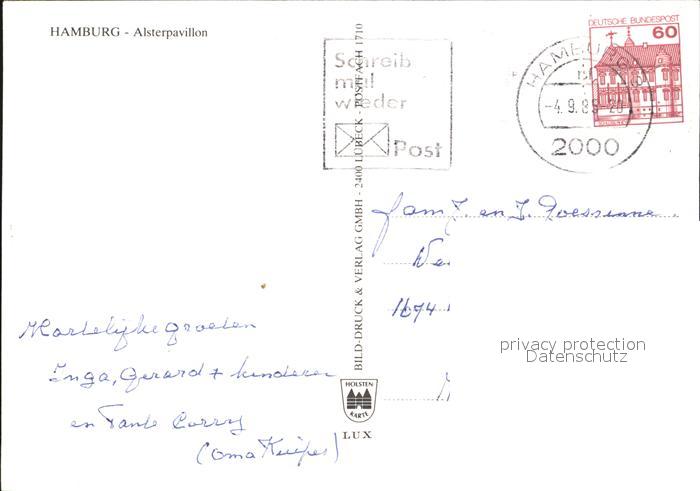 HAMBURG - Alsterpavillon
Schreib
mal
wieder
Post
DEUTSCHE BUNDESPOST
60
HAMBURG
-4.9.89-20
2000
BILD-DRUCK & VERLAG GMBH - 2400 LÜBECK - POSTFACH 1710
fam J. en J.
1674
privacy protection
Datenschutz
Hartelijke groeten
Inga, Gerard + kinderen
en Tante Corry
(oma Kuiper)
HOLSTEN
KARTE
LUX